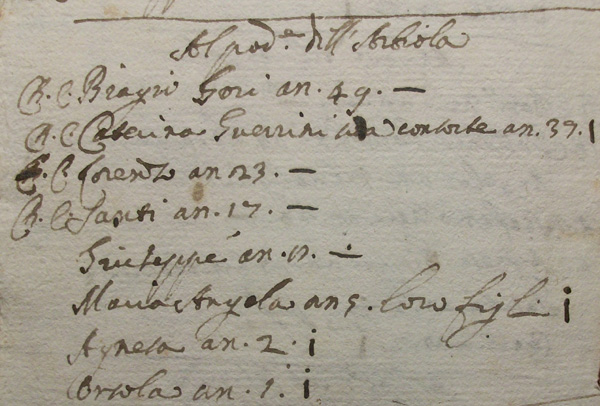 Al pod.e dell'Arbiola
C. C. Biagio Gori an. 49. —
C. C. Caterina Guerrini sua consorte an. 39. i
C. C. Lorenzo an 23. —
C. C. Santi an. 17. —
Giuseppe an. 11. —
Maria Angela an 5. loro figli i
Agnesa an. 2. i
Orsola an. 1. i